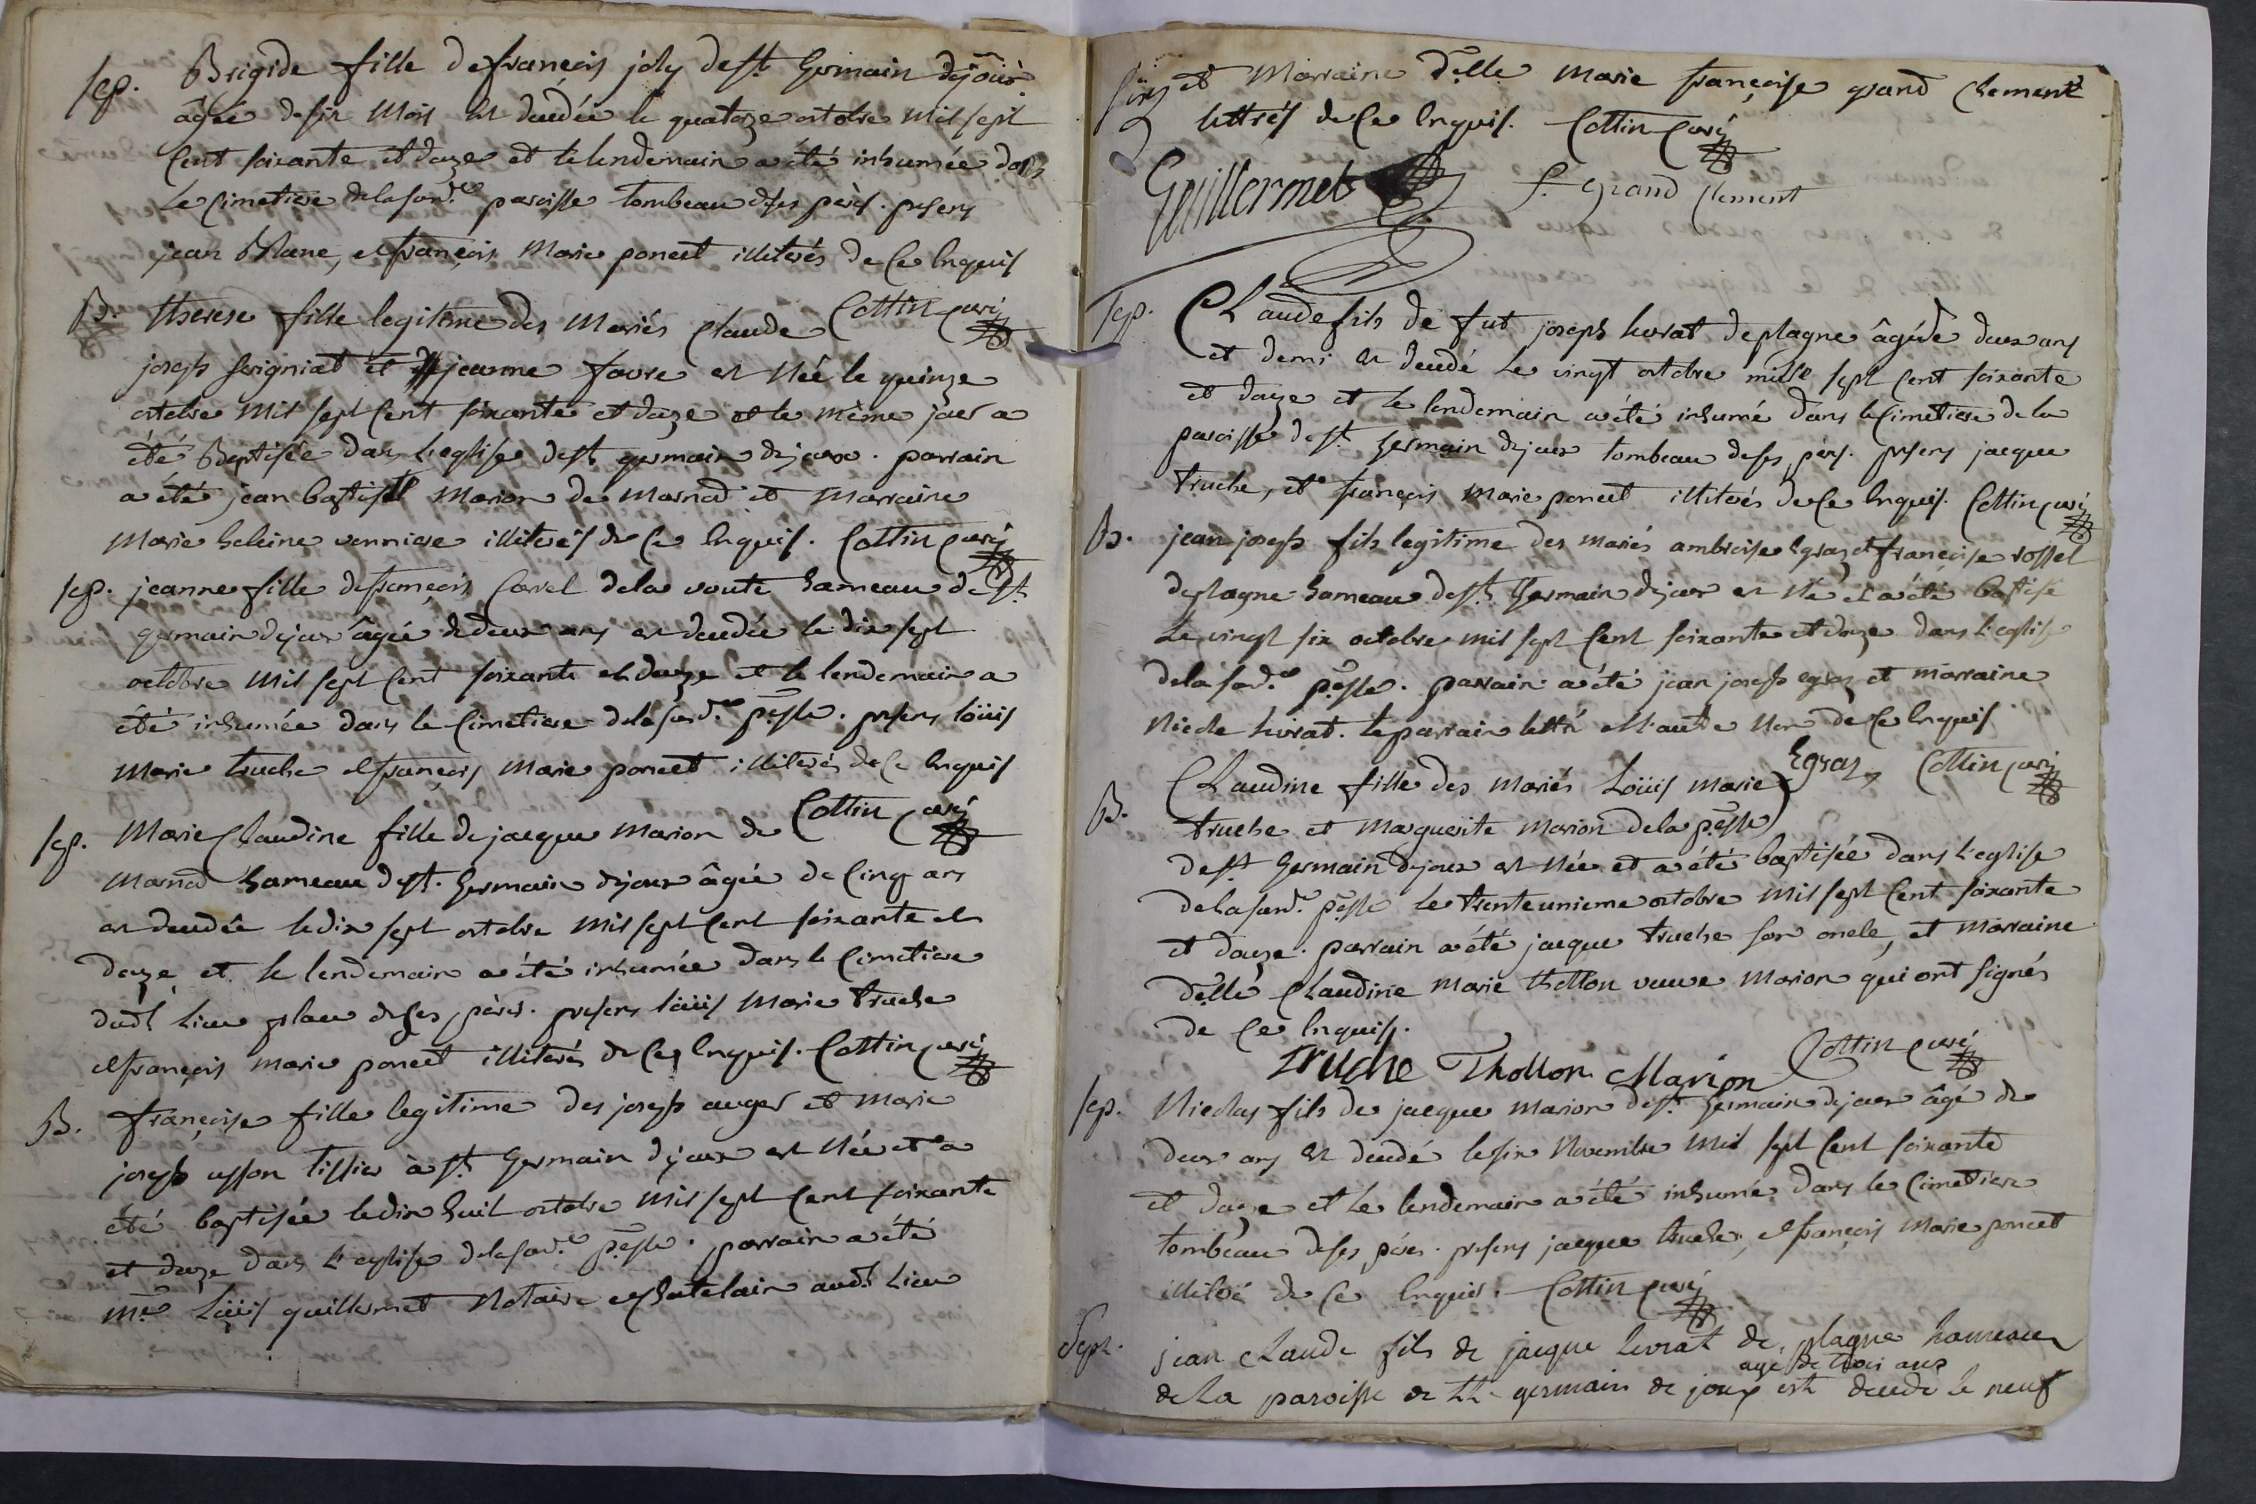 Sep. Brigide fille de françois joly de st Germain dejoux
âgée de six Mois est décédée le quatorze octobre mil sept
Cent soixante et douze et le lendemain a été inhumée dans
le Cimetiere de la susd.e paroisse tombeau de ses pères. presens
jean Blanc, et françois Marie poncet illiterés de Ce Enquis
Cottin curé
B. therese fille legitime des Mariés Claude
joseph seigniat et jeanne favre est Née le quinze
octobre Mil sept Cent soixante et douze et le même jour a
été Baptisée dans L'eglise de st germain dejoux. parrain
a été jean baptiste Marion de Marnod et Marraine
Marie heleine vernier illiterés de Ce Enquis. Cottin curé
Sep. jeanne fille de françois Carrel de la voute hameau de st
germain dejoux âgée de deux ans est décédée le dix sept
octobre Mil sept Cent soixante et douze et le lendemain a
été inhumée dans le Cimetiere de la susd.e p.sse. presens loüis
Marie truche et françois Marie poncet illiterés de Ce Enquis
Cottin curé
Sep. Marie Claudine fille de jacque Marion de
Marnod hameau de st. Germain dejoux âgée de Cinq ans
est décédée le dix sept octobre Mil sept Cent soixante et
douze et le lendemain a été inhumée dans le Cimetiere
dudt Lieu de ses pères. presens loüis Marie truche
et françois Marie poncet illiterés de Ce Enquis. Cottin curé
B. françoise fille legitime des joseph auger et Marie
joseph tissier à st Germain dejoux est Née et a
été baptisée le dix huit octobre Mil sept Cent soixante
et douze dans L'eglise de la susd.e p.sse. parrain a été
M.e Loüis guillermet Notaire et Chatelain audt Lieu
et Marraine d.elle Marie françoise grand Clement
lettrés de Ce Enquis. Cottin curé
Guillermet f. grand Clement
Sep. Claude fils de fut joseph livrat de plagne âgé de deux ans
et demi est décédé Le vingt octobre mille sept Cent soixante
et douze et le lendemain a été inhumé dans le Cimetiere de la
paroisse de st. germain dejoux tombeau de ses pères. presens jacque
truche, et françois Marie poncet illiterés de Ce Enquis. Cottin curé
B. jean joseph fils legitime des mariés ambroise Egraz et françoise rossel
de plagne hameau de st. Germain dejoux est Né et a été baptisé
Le vingt six octobre mil sept Cent soixante et douze dans L'eglise
de la susd.e p.sse. parrain a été jean joseph egraz et marraine
Nicole livrat. le parrain lettré et l'autre Non de Ce Enquis
Egraz Cottin curé
B. Claudine fille des mariés Loüis Marie
truche et Marguerite Marion de la p.sse
de st Germain dejoux est Née et a été baptisée dans L'eglise
de la susd.e p.sse le trente unieme octobre Mil sept Cent soixante
et douze. parrain a été jacque truche son oncle, et Marraine
d.elle Claudine Marie thollon veuve Marion qui ont signés
de Ce Enquis.
truche Thollon Marion Cottin curé
Sep. Nicolas fils de jacque Marion de st. Germain dejoux âgé de
deux ans est décédé le six Novembre Mil sept Cent soixante
et douze et le lendemain a été inhumé dans le Cimetiere
tombeau de ses pères. presens jacque truche, et françois Marie poncet
illiteré de Ce Enquis. Cottin curé
Sep. jean Claude fils de jacque livrat de plagne hameau
agé de trois ans
de La paroisse de st. germain de joux est decedé le neuf